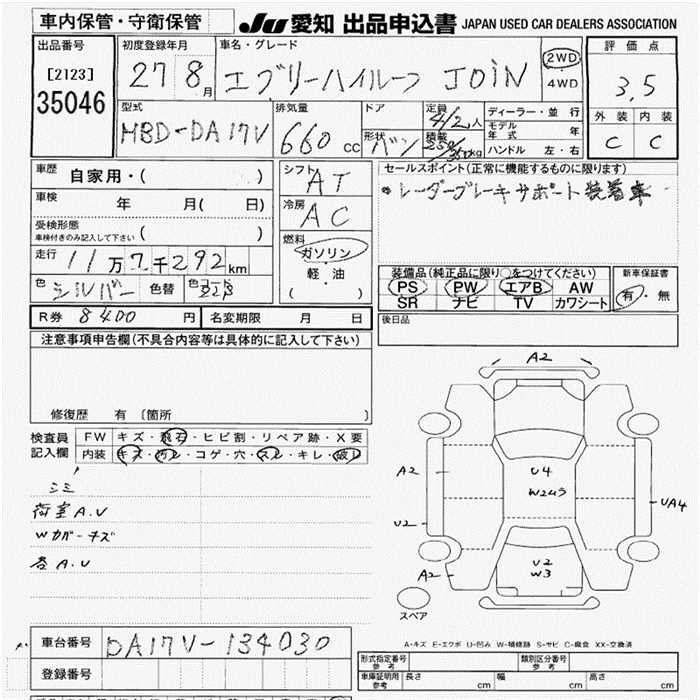 車内保管・守衛保管
JU 愛知 出品申込書 JAPAN USED CAR DEALERS ASSOCIATION
出品番号
[2123]
35046
初度登録年月
27 8月
車名・グレード
エブリーハイルーフ JOIN
2WD
4WD
評価点
3.5
外装 内装
C C
型式
HBD-DA17V
排気量
660 cc
ドア
形状
バン
定員
4/2人
積載
250/350kg
ディーラー・並行
モデル年式 年
ハンドル 左・右
車歴
自家用・( )
車検
年 月( 日)
受検形態
車検付きのみ記入して下さい ( )
走行
11万7千292km
色
シルバー
色替
色コード
Z2S
シフト
AT
冷房
AC
燃料
ガソリン
軽・油
( )
セールスポイント(正常に機能するものに限ります)
*レーダーブレーキサポート装着車
装備品(純正品に限り○をつけてください)
PS PW エアB AW
SR ナビ TV カワシート
新車保証書
有・無
R券 8400円
名変期限 月 日
後日品
注意事項申告欄(不具合内容等は具体的に記入して下さい)
修復歴 有 [箇所 ]
検査員
記入欄
FW キズ・飛石・ヒビ割・リペア跡・X要
内装 キズ・汚レ・コゲ・穴・スレ・キレ・破レ
シミ
荷室A.U
Wカバーキズ
巻A.U
A2
A2
U4
W2ムラ
UA4
U2
A2
U2
W3
スペア
A-キズ E-エクボ U-凹み W-補修跡 S-サビ C-腐食 XX-交換済
車台番号
DA17V-134030
登録番号
形式指定番号
参考
類別区分番号
参考
車庫証明用
参考
長さ cm
幅 cm
高さ cm